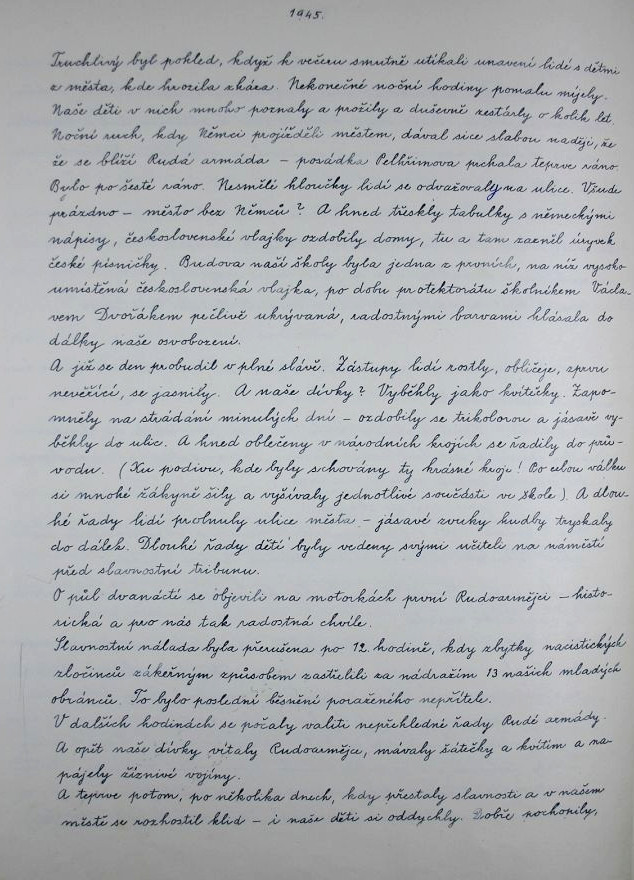 1945.
Truchlivý byl pohled, když k večeru smutně utíkali unavení lidé s dětmi
z města, kde hrozila zkáza. Nekonečné noční hodiny pomalu míjely.
Naše děti v nich mnoho poznaly a prožily a duševně zestárly o kolik let.
Noční ruch, kdy Němci projížděli městem, dával sice slabou naději, že
že se blíží Rudá armáda – posádka Pelhřimova prchala teprve ráno.
Bylo po šesté ráno. Nesmělé hloučky lidí se odvažovaly na ulice. Všude
prázdno – město bez Němců? A hned třeskly tabulky s německými
nápisy, československé vlajky ozdobily domy, tu a tam zazněl úryvek
české písničky. Budova naší školy byla jedna z prvních, na níž vysoko
umístěná československá vlajka, po dobu protektorátu školníkem Václa-
vem Dvořákem pečlivě ukrývaná, radostnými barvami hlásala do
dálky naše osvobození.
A již se den probudil v plné slávě. Zástupy lidí rostly, obličeje, zprvu
nevěřící, se jasnily. A naše dívky? Vyběhly jako kvítečky. Zapo-
mněly na strádání minulých dní – ozdobily se trikolorou a jásavě vy-
běhly do ulic. A hned oblečeny v národních krojích se řadily do prů-
vodu. (Ku podivu, kde byly schovány ty krásné kroje! Po celou válku
si mnohé žákyně šily a vyšívaly jednotlivé součásti ve škole.) A dlou-
hé řady lidí prolnuly ulice města – jásavé zvuky hudby tryskaly
do dálek. Dlouhé řady dětí byly vedeny svými učiteli na náměstí
před slavnostní tribunu.
O půl dvanácté se objevili na motorkách první Rudoarmějci – histo-
rická a pro nás tak radostná chvíle.
Slavnostní nálada byla přerušena po 12. hodině, kdy zbytky nacistických
zločinců zákeřným způsobem zastřelili za nádražím 13 našich mladých
obránců. To bylo poslední běsnění poraženého nepřítele.
V dalších hodinách se počaly valiti nepřehledné řady Rudé armády.
A opět naše dívky vítaly Rudoarmějce, mávaly šátečky a kvítím a na-
pájely žíznivé vojíny.
A teprve potom, po několika dnech, kdy přestaly slavnosti a v našem
městě se rozhostil klid – i naše děti si oddychly. Dobře pochopily,